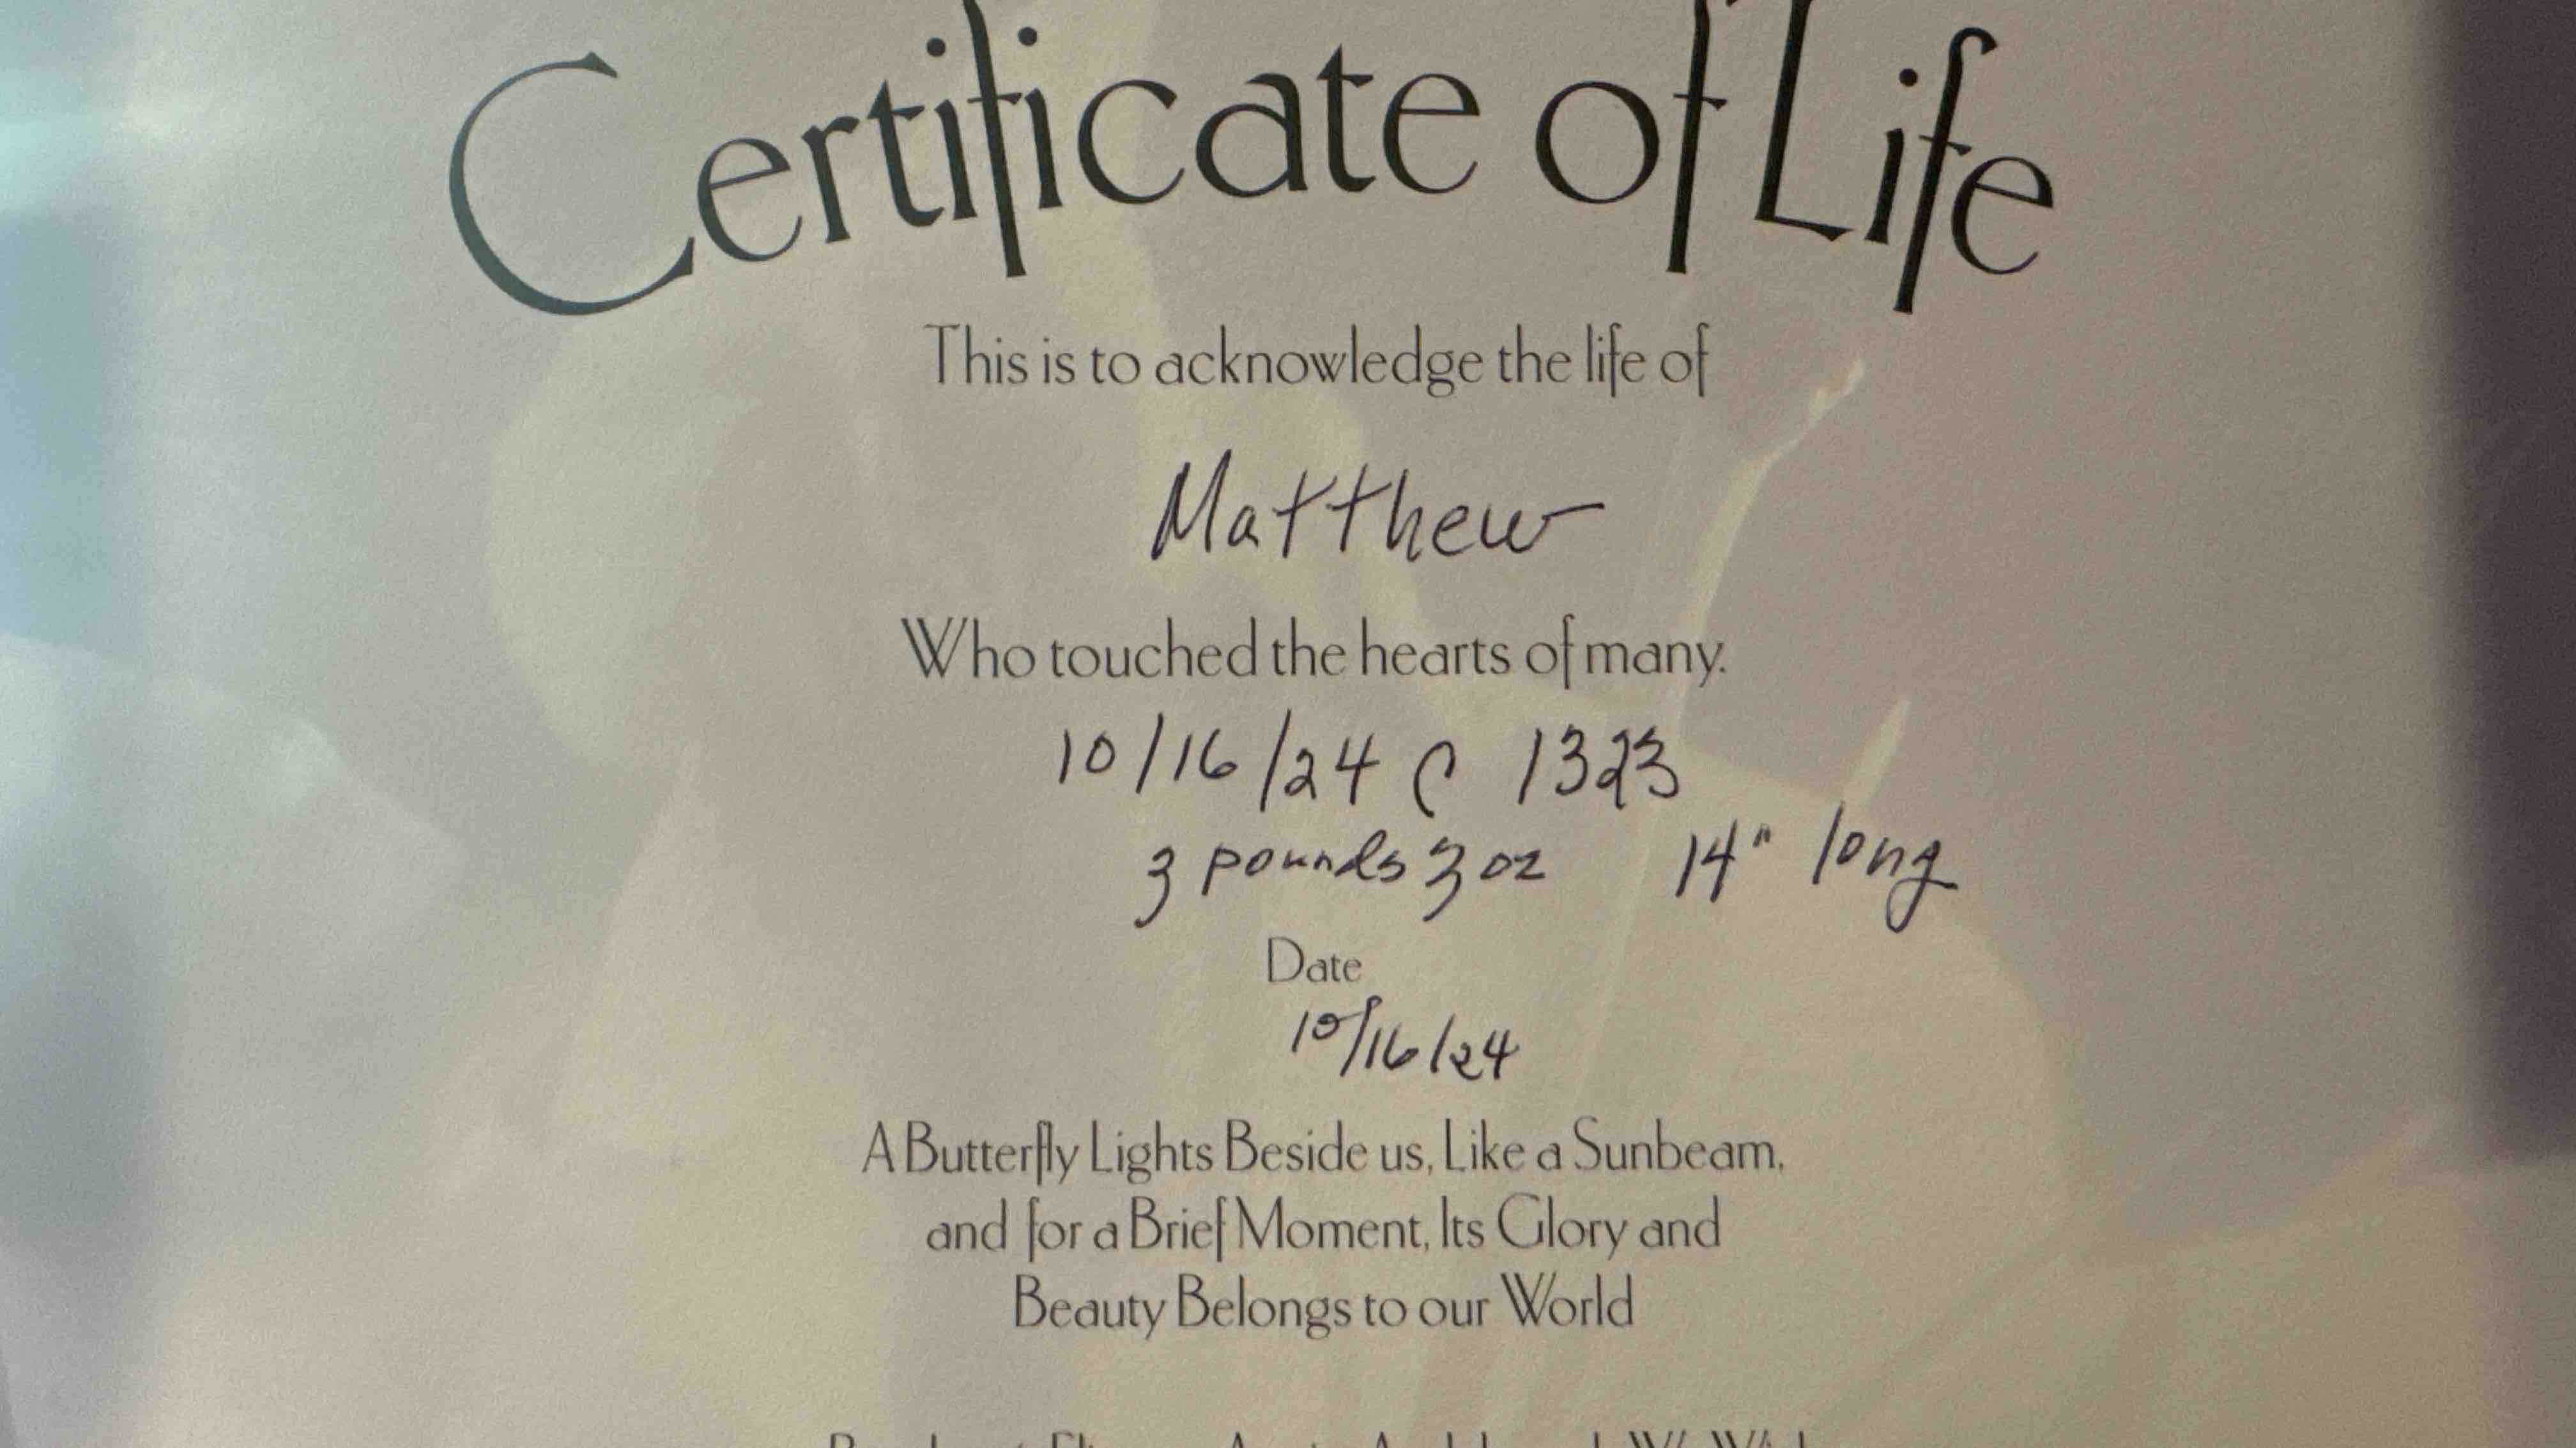 Certificate of Life
This is to acknowledge the life of
Matthew
Who touched the hearts of many.
10/16/24 @ 1323
3 pounds 3 oz 14" long
Date
10/16/24
A Butterfly Lights Beside us, Like a Sunbeam,
and for a Brief Moment, Its Glory and
Beauty Belongs to our World